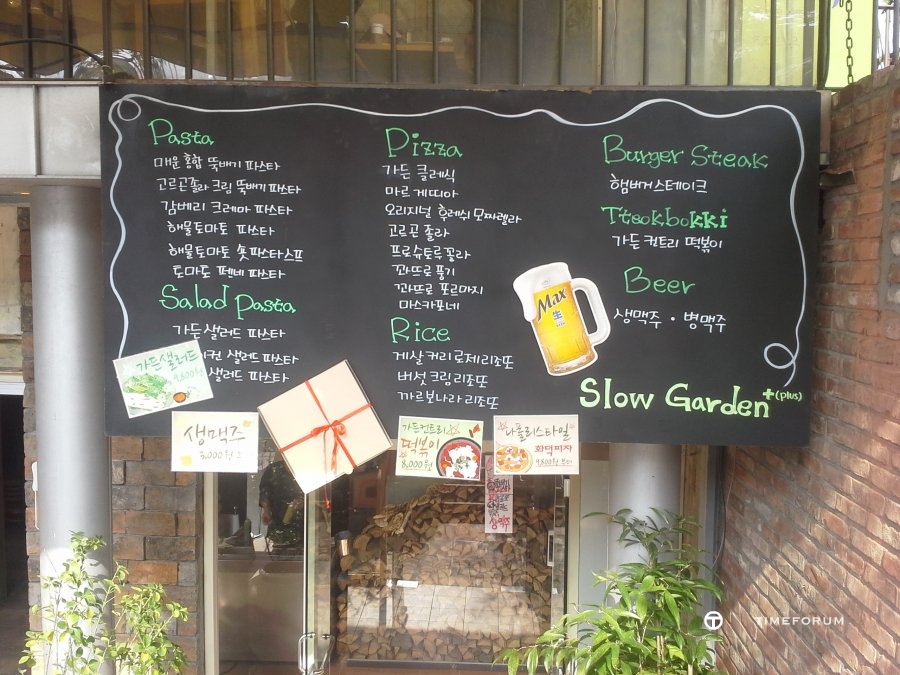 Pasta
매운 홍합 뚝배기 파스타
고르곤졸라 크림 뚝배기 파스타
감베리 크레마 파스타
해물토마토 파스타
해물토마토 솟파스타스프
토마토 펜네 파스타
Salad Pasta
가든샐러드 파스타
컨 샐러드 파스타
샐러드 파스타
Pizza
가든 클레식
마르게띠아
오리지널 후레쉬 모짜렐라
고르곤 졸라
프로슈토루꼴라
꽈뜨로 풍기
꽈뜨로 포르마지
마스카포네
Rice
게살 커리 로제 리조또
버섯 크림 리조또
까르보나라 리조또
Burger Steak
햄버거스테이크
Tteokbokki
가든 컨트리 떡볶이
Beer
생맥주 · 병맥주
Max
生
Slow Garden+(plus)
가든샐러드
9,800원
생맥주
3,000원
가든컨트리
떡볶이
8,000원
나폴리스타일
화덕피자
9,800원 부터
생맥주
T TIMEFORUM